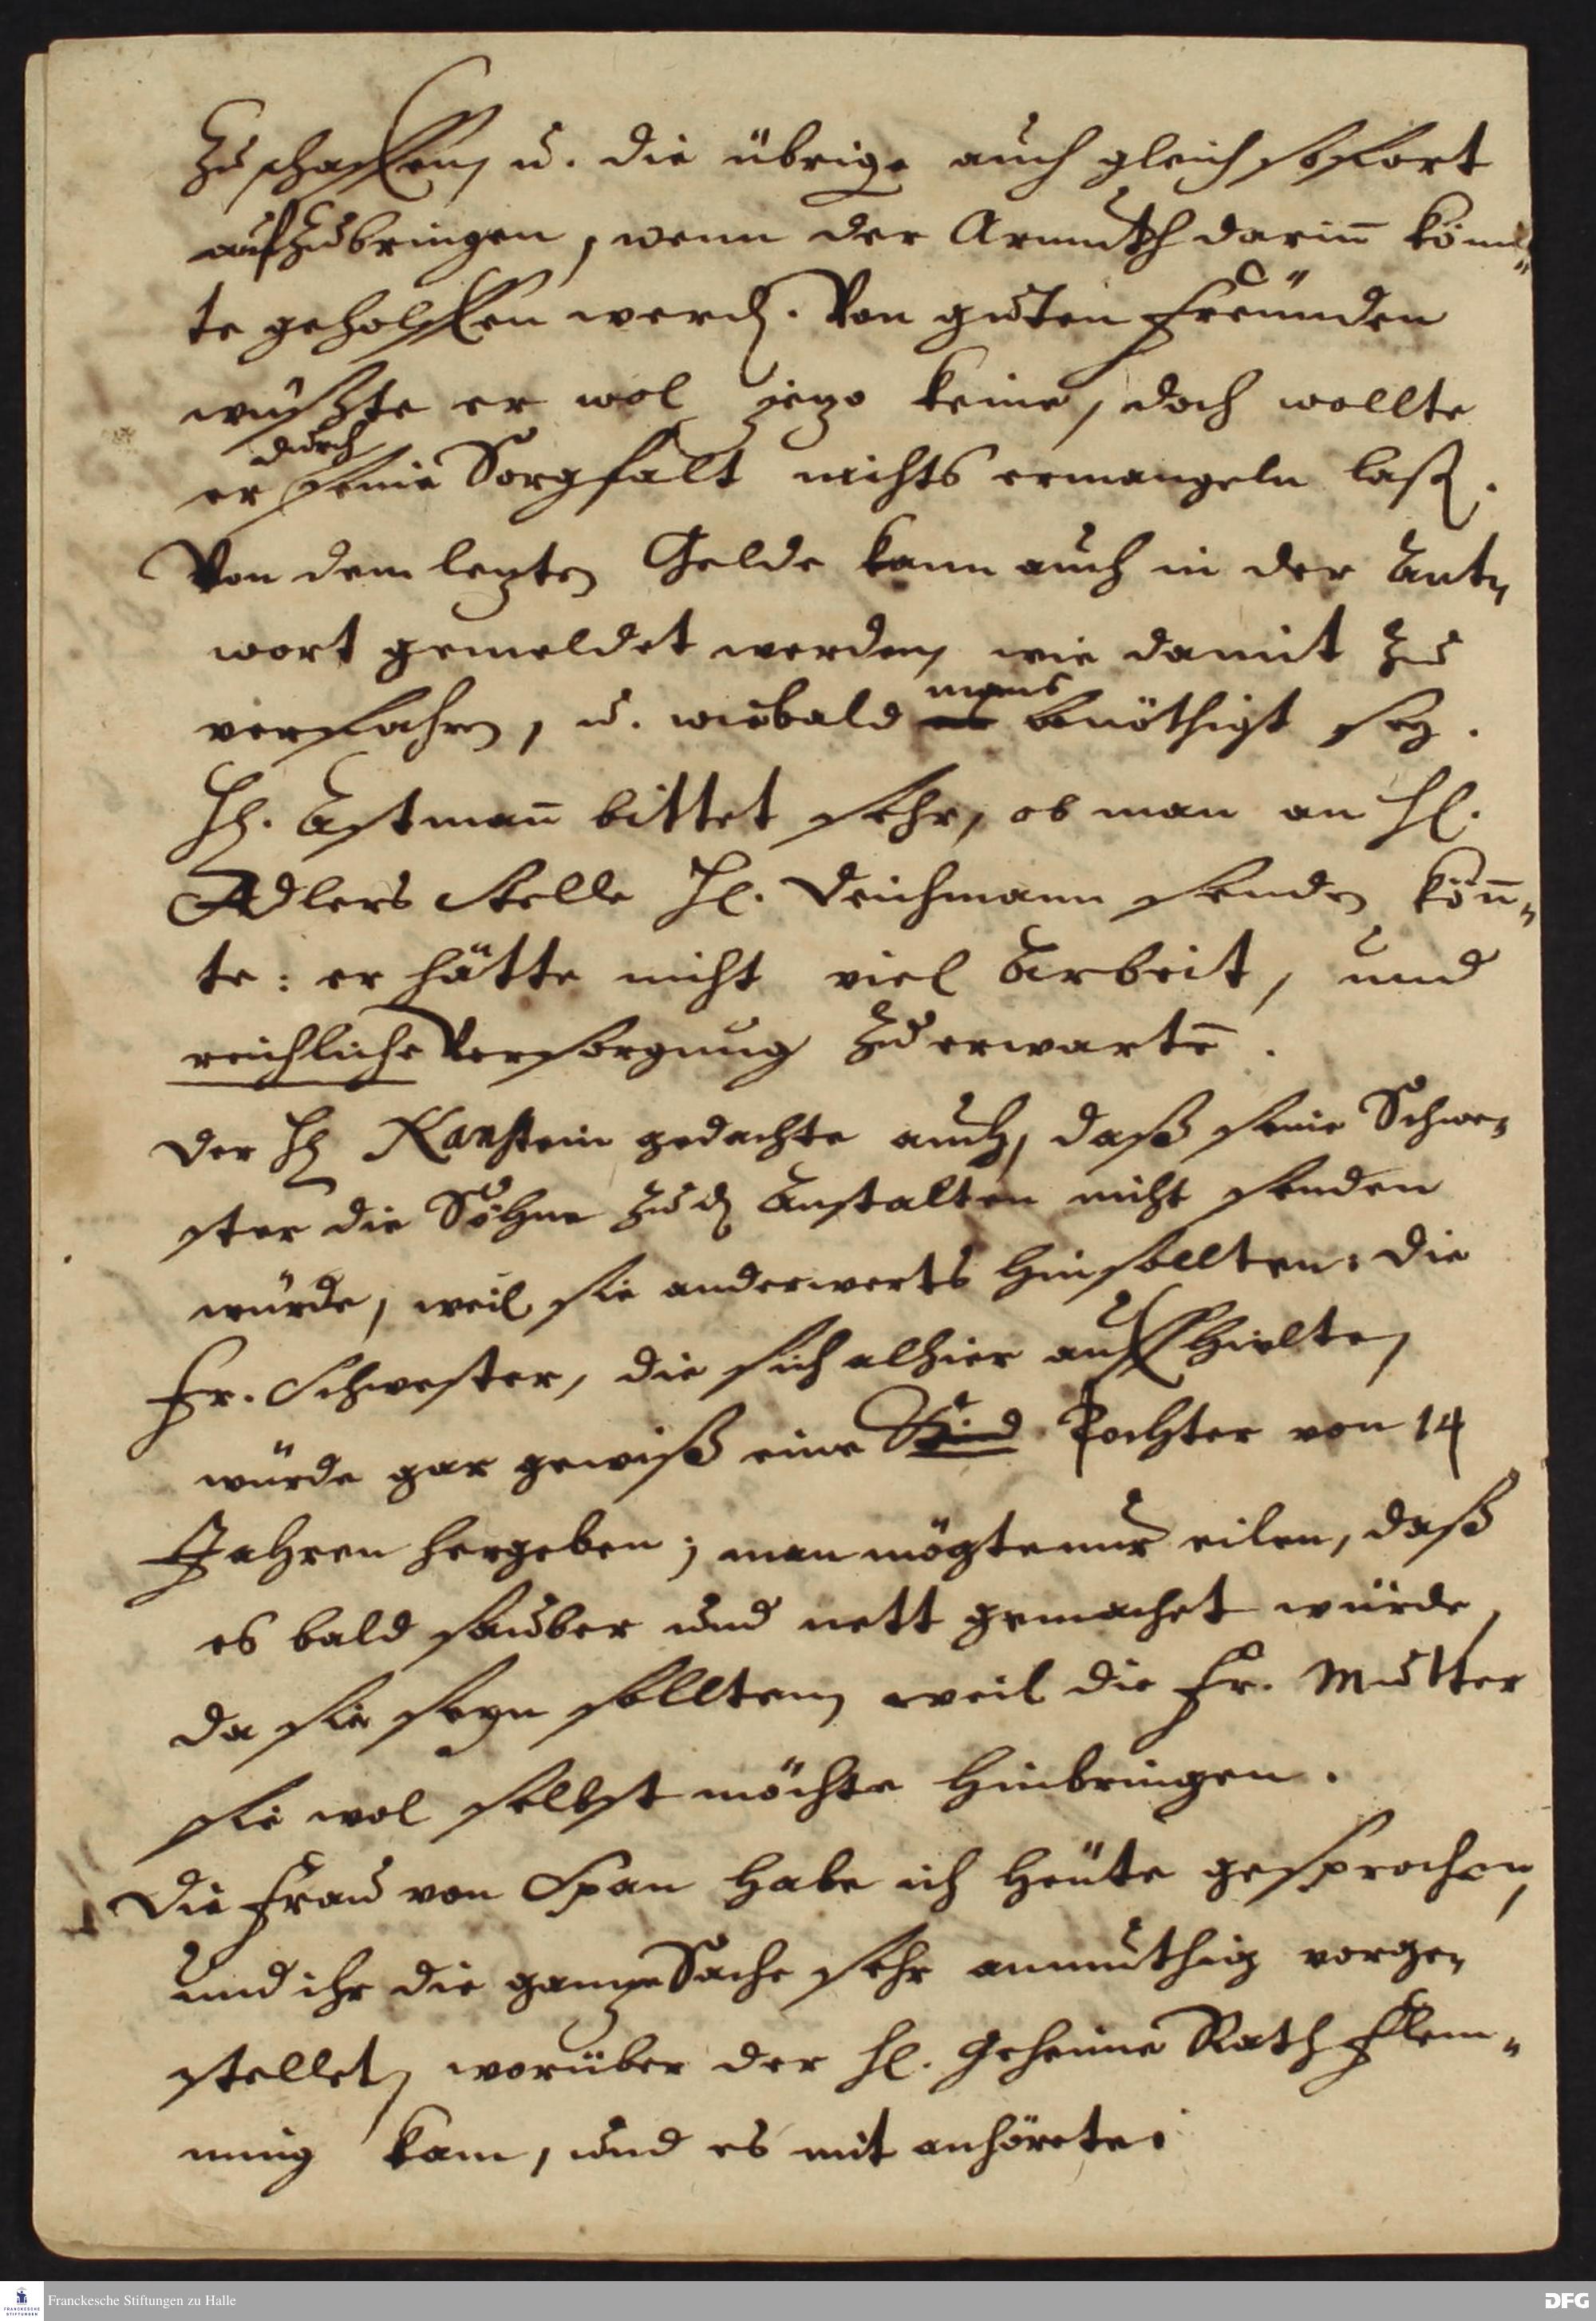 zuschaffen, u. die übrige auch gleich sofort
aufzubringen, wenn der Armuth darin̅ könn„
te geholffen werd. Von guten Freünden
wuszte er wol jetzo keine, doch wollte
durch
er seine Sorgfalt nichts ermangeln lass.
Von dem letzten Gelde kann auch in der Ant„
wort gemeldet werden, wie damit zu
verfahren, u. wiebald
mans
es benöthigt sey.
H. Astman̅ bittet sehr, ob man an H.
Adlers Stelle H. Deichmann senden kön̅„
te: er hätte nicht viel Arbeit, und
reichliche Versorgung zu erwarte̅.
Der H. Kanstein gedachte auch, daß seine Schwe„
ster die Söhne zu d. Anstalten nicht senden
würde, weil sie anderwerts hinsollten: die
Fr. Schwester, die sich alhier auffhielte,
würde gar gewiß eine Kind Tochter von 14
Jahren hergeben; man mögte nur eilen, daß
es bald sauber und nett gemachet würde,
da sie seyn sollten, weil die Fr. Mutter
sie wol selbst möchte hinbringen.
Die Frau von Span habe ich heüte gesprochen,
und ihr die gantze Sache sehr anmuthig vorge„
stellet, worüber der H. Geheime Rath Flem„
ming kam, und es mit anhörete.
Franckesche Stiftungen zu Halle
DFG